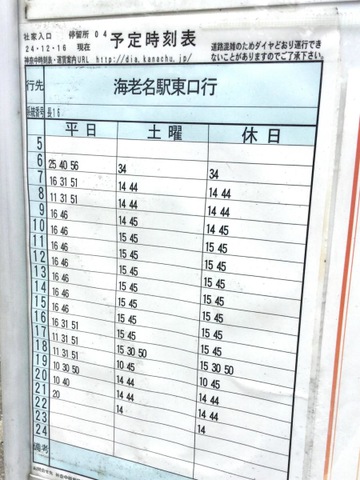 社家入口 停留所 04 予定時刻表
24.12.16 現在
神奈中時刻表・運賃案内URL http://dia.kanachu.jp/
道路混雑のためダイヤどおり運行できないことがありますのでご了承下さい。
行先 海老名駅東口行
系統番号 長16
平日 土曜 休日
5
6 25 40 56 34 34
7 16 31 51 14 44 14 44
8 11 31 51 14 44 14 44
9 16 46 14 45 14 45
10 16 46 15 45 15 45
11 16 46 15 45 15 45
12 16 46 15 45 15 45
13 16 46 15 45 15 45
14 16 46 15 45 15 45
15 16 46 15 45 15 45
16 16 31 51 15 45 15 45
17 11 31 51 15 30 50 15 30 50
18 11 31 51 10 45 10 45
19 10 30 50 14 44 14 44
20 10 40 14 44 14 44
21 20 14 14
22
23
24
備考